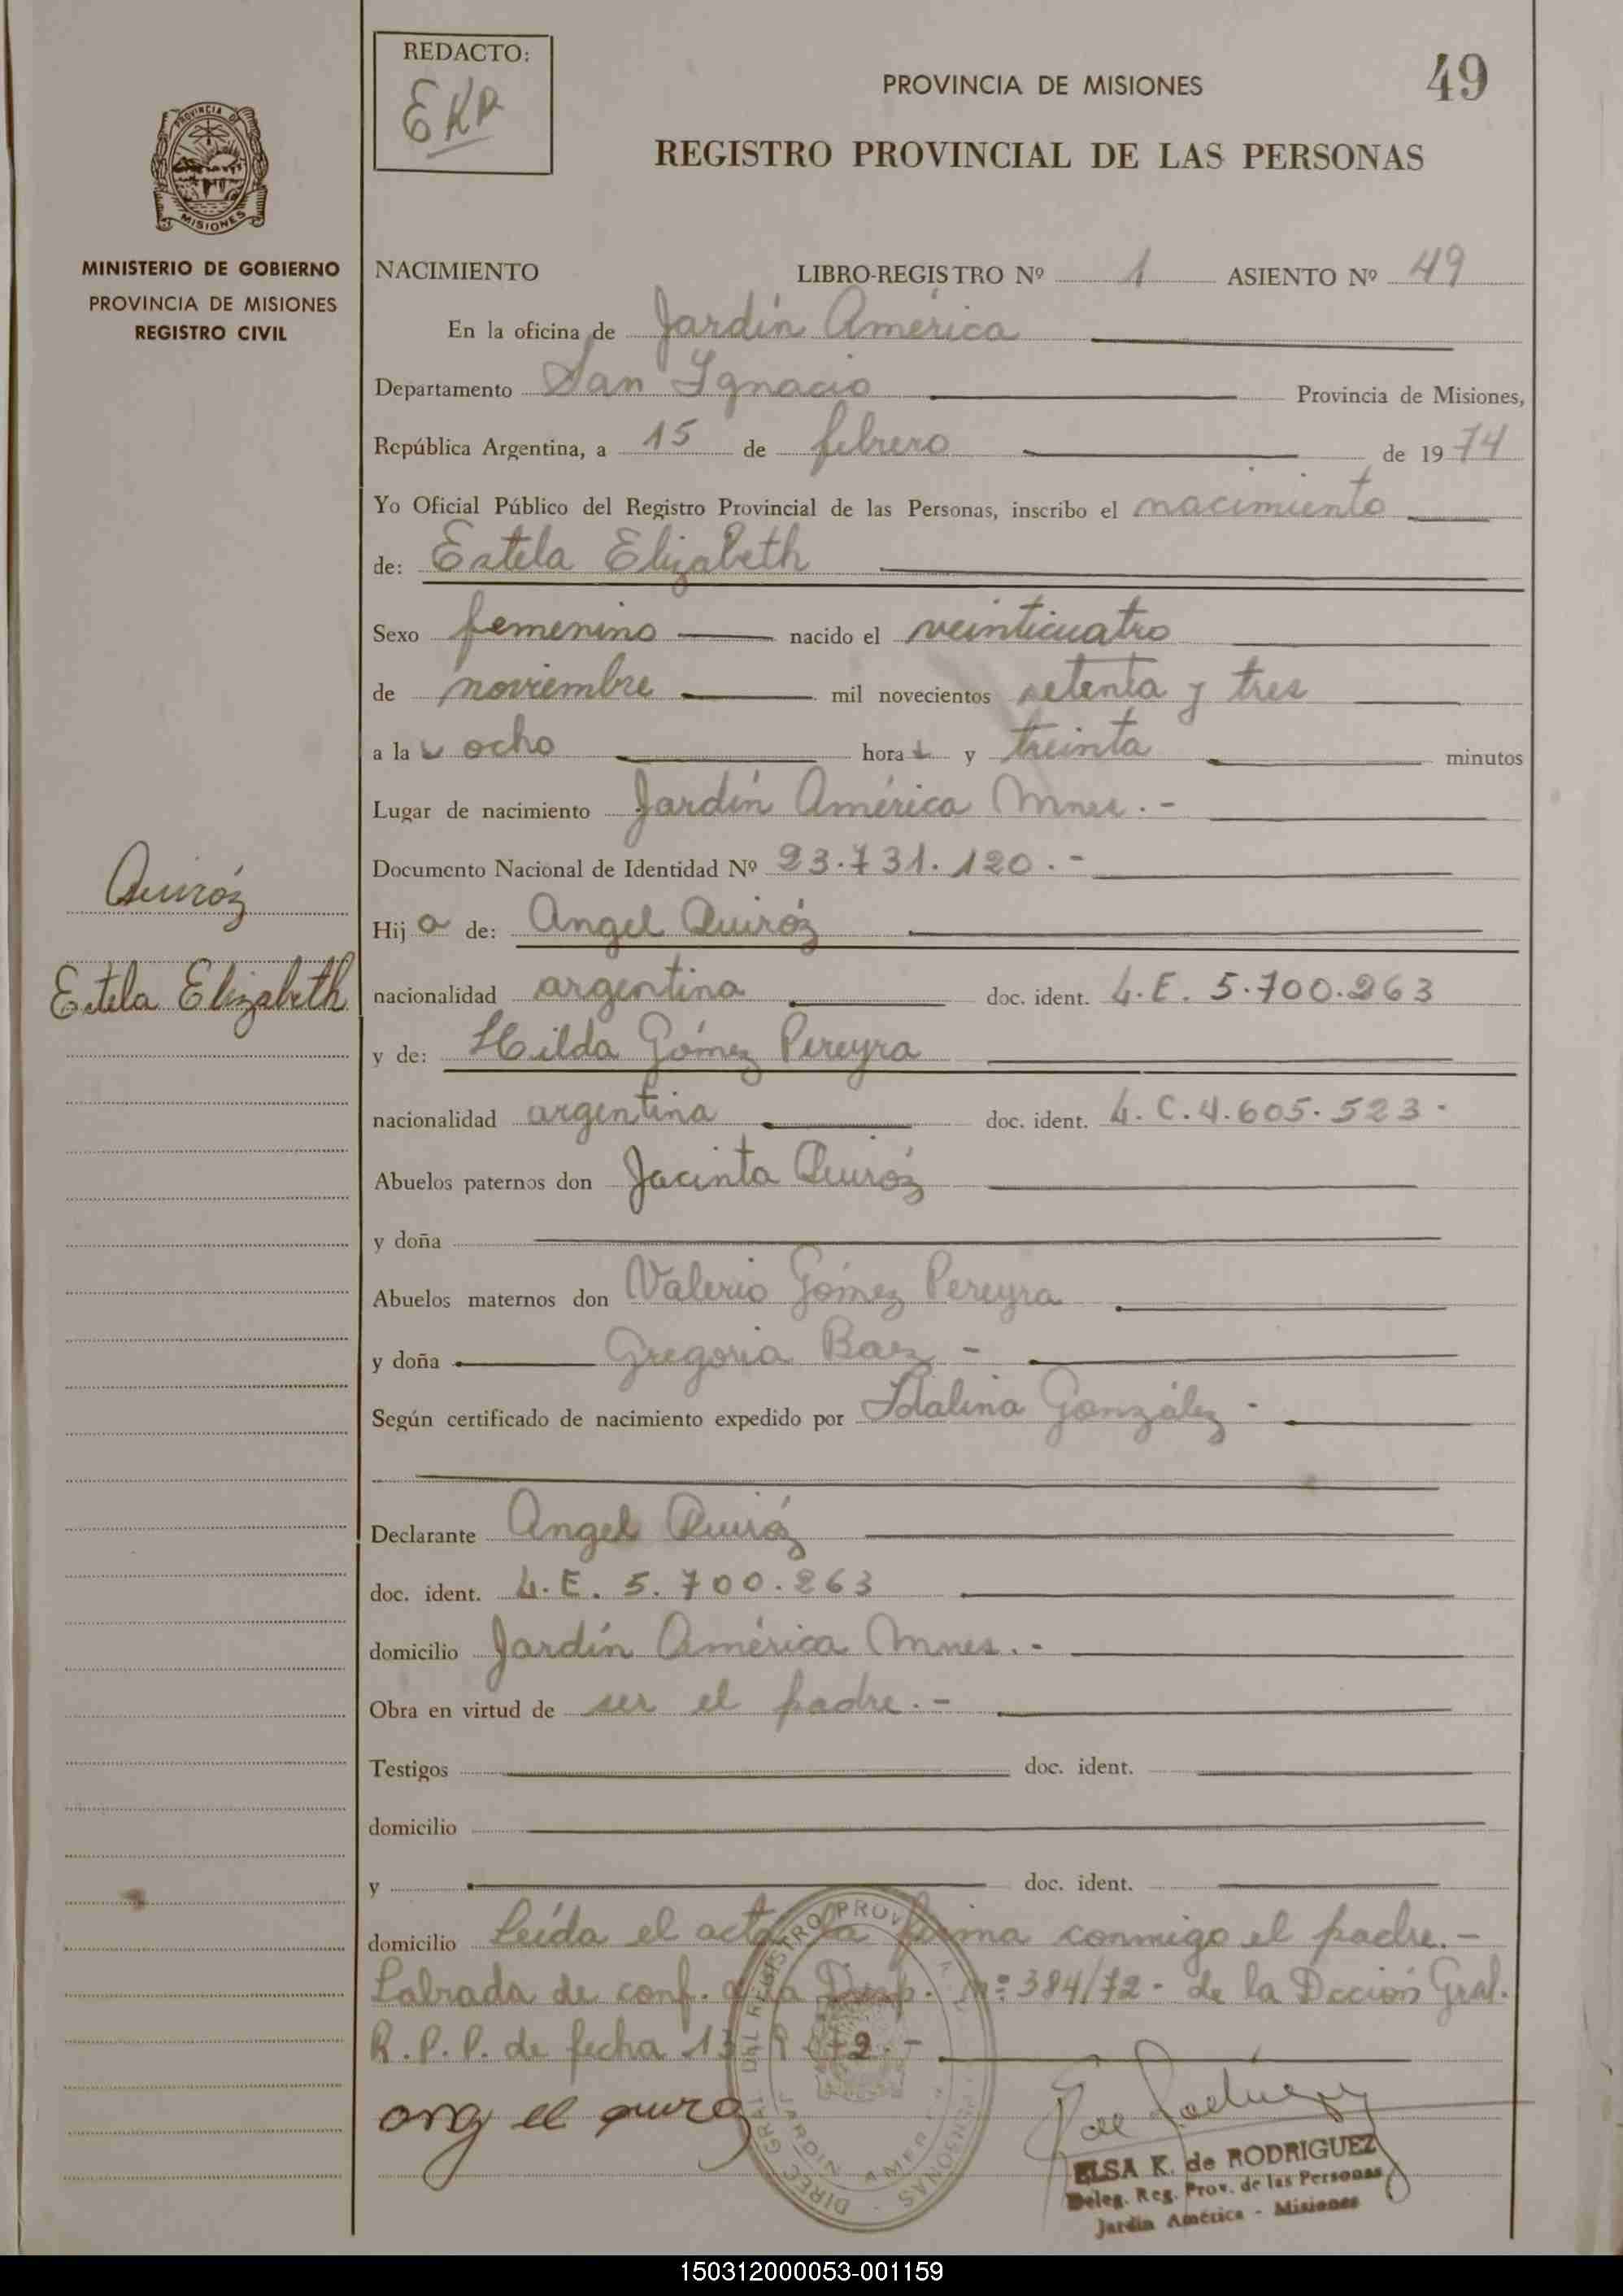 REDACTO:
EKR
PROVINCIA DE MISIONES
49
REGISTRO PROVINCIAL DE LAS PERSONAS
PROVINCIA DE
MISIONES
MINISTERIO DE GOBIERNO
PROVINCIA DE MISIONES
REGISTRO CIVIL
NACIMIENTO LIBRO-REGISTRO Nº 1 ASIENTO Nº 49
En la oficina de Jardín América
Departamento San Ignacio Provincia de Misiones,
República Argentina, a 15 de febrero de 1974
Yo Oficial Público del Registro Provincial de las Personas, inscribo el nacimiento
de: Estela Elizabeth
Sexo femenino nacido el veinticuatro
de noviembre mil novecientos setenta y tres
a las ocho horas y treinta minutos
Lugar de nacimiento Jardín América Mnes. -
Documento Nacional de Identidad Nº 23.731.120. -
Quiróz
Hija de: Angel Quiróz
Estela Elizabeth
nacionalidad argentina doc. ident. L.E. 5.700.263
y de: Hilda Gómez Pereyra
nacionalidad argentina doc. ident. L.C. 4.605.523 -
Abuelos paternos don Jacinta Quiróz
y doña
Abuelos maternos don Valerio Gómez Pereyra
y doña Gregoria Baez -
Según certificado de nacimiento expedido por Idalina González -
Declarante Angel Quiróz
doc. ident. L.E. 5.700.263
domicilio Jardín América Mnes. -
Obra en virtud de ser el padre. -
Testigos doc. ident.
domicilio
y doc. ident.
domicilio Leída el acta la firma conmigo el padre. -
Labrada de conf. a la Disp. nº 384/72 - de la Dccion Gral.
R.P.P. de fecha 13-9-72. -
ang el quiro
DIREC. GRAL. DEL REGISTRO PROV. PERSONAS
JARDIN AMERICA
ELSA K. de RODRIGUEZ
Deleg. Reg. Prov. de las Personas
Jardín América - Misiones
150312000053-001159